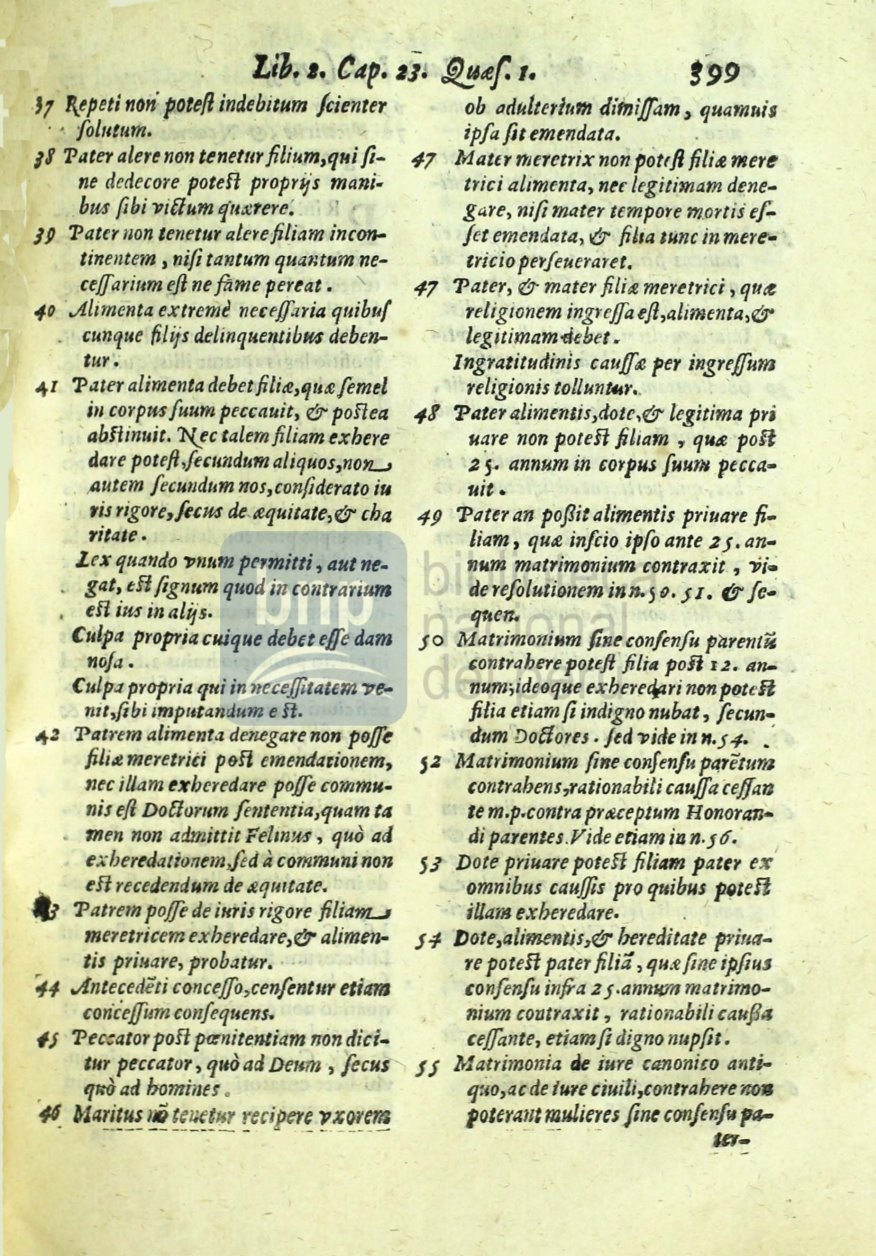 Lib. 2. Cap. 23. Quæſ. 1. 399
37 Repeti non poteſt indebitum ſcienter
ſolutum.
38 Pater alere non tenetur filium, qui ſi-
ne dedecore poteſt proprijs mani-
bus ſibi victum quærere.
39 Pater non tenetur alere filiam incon-
tinentem, niſi tantum quantum ne-
ceſſarium eſt ne fame pereat.
40 Alimenta extremè neceſſaria quibuſ
cunque filijs delinquentibus deben-
tur.
41 Pater alimenta debet filiæ, quæ ſemel
in corpus ſuum peccauit, & poſtea
abſtinuit. Nec talem filiam exhere
dare poteſt, ſecundum aliquos, non
autem ſecundum nos, conſiderato iu
ris rigore, ſecus de æquitate, & cha
ritate.
Lex quando vnum permitti, aut ne-
gat, eſt ſignum quod in contrarium
eſt ius in alijs.
Culpa propria cuique debet eſſe dam
noſa.
Culpa propria qui in neceſſitatem ve-
nit, ſibi imputandum eſt.
42 Patrem alimenta denegare non poſſe
filiæ meretrici poſt emendationem,
nec illam exheredare poſſe commu-
nis eſt Doctorum ſententia, quam ta
men non admittit Felinus, quò ad
exheredationem, ſed à communi non
eſt recedendum de æquitate.
43 Patrem poſſe de iuris rigore filiam
meretricem exheredare, & alimen-
tis priuare, probatur.
44 Antecedẽti conceſſo, cenſentur etiam
conceſſum conſequens.
45 Peccator poſt pœnitentiam non dici-
tur peccator, quò ad Deum, ſecus
quò ad homines.
46 Maritus nõ tenetur recipere vxorem
ob adulterium dimiſſam, quamuis
ipſa ſit emendata.
47 Mater meretrix non poteſt filiæ mere
trici alimenta, nec legitimam dene-
gare, niſi mater tempore mortis eſ-
ſet emendata, & filia tunc in mere-
tricio perſeueraret.
47 Pater, & mater filiæ meretrici, quæ
religionem ingreſſa eſt, alimenta, &
legitimam debet.
Ingratitudinis cauſſæ per ingreſſum
religionis tolluntur.
48 Pater alimentis, dote, & legitima pri
uare non poteſt filiam, quæ poſt
25. annum in corpus ſuum pecca-
uit.
49 Pater an poßit alimentis priuare fi-
liam, quæ inſcio ipſo ante 25. an-
num matrimonium contraxit, vi-
de reſolutionem in n. 50. 51. & ſe-
quen.
50 Matrimonium ſine conſenſu parentũ
contrahere poteſt filia poſt 12. an-
num; ideoque exheredari non poteſt
filia etiam ſi indigno nubat, ſecun-
dum Doctores. ſed vide in n. 54.
52 Matrimonium ſine conſenſu parẽtum
contrahens, rationabili cauſſa ceſſan
te m.p. contra præceptum Honoran-
di parentes. Vide etiam in n. 56.
53 Dote priuare poteſt filiam pater ex
omnibus cauſſis pro quibus poteſt
illam exheredare.
54 Dote, alimentis, & hereditate priua-
re poteſt pater filiã, quæ ſine ipſius
conſenſu infra 25. annum matrimo-
nium contraxit, rationabili caußa
ceſſante, etiam ſi digno nupſit.
55 Matrimonia de iure canonico anti-
quo, ac de iure ciuili, contrahere non
poterant mulieres ſine conſenſu pa-
ter-